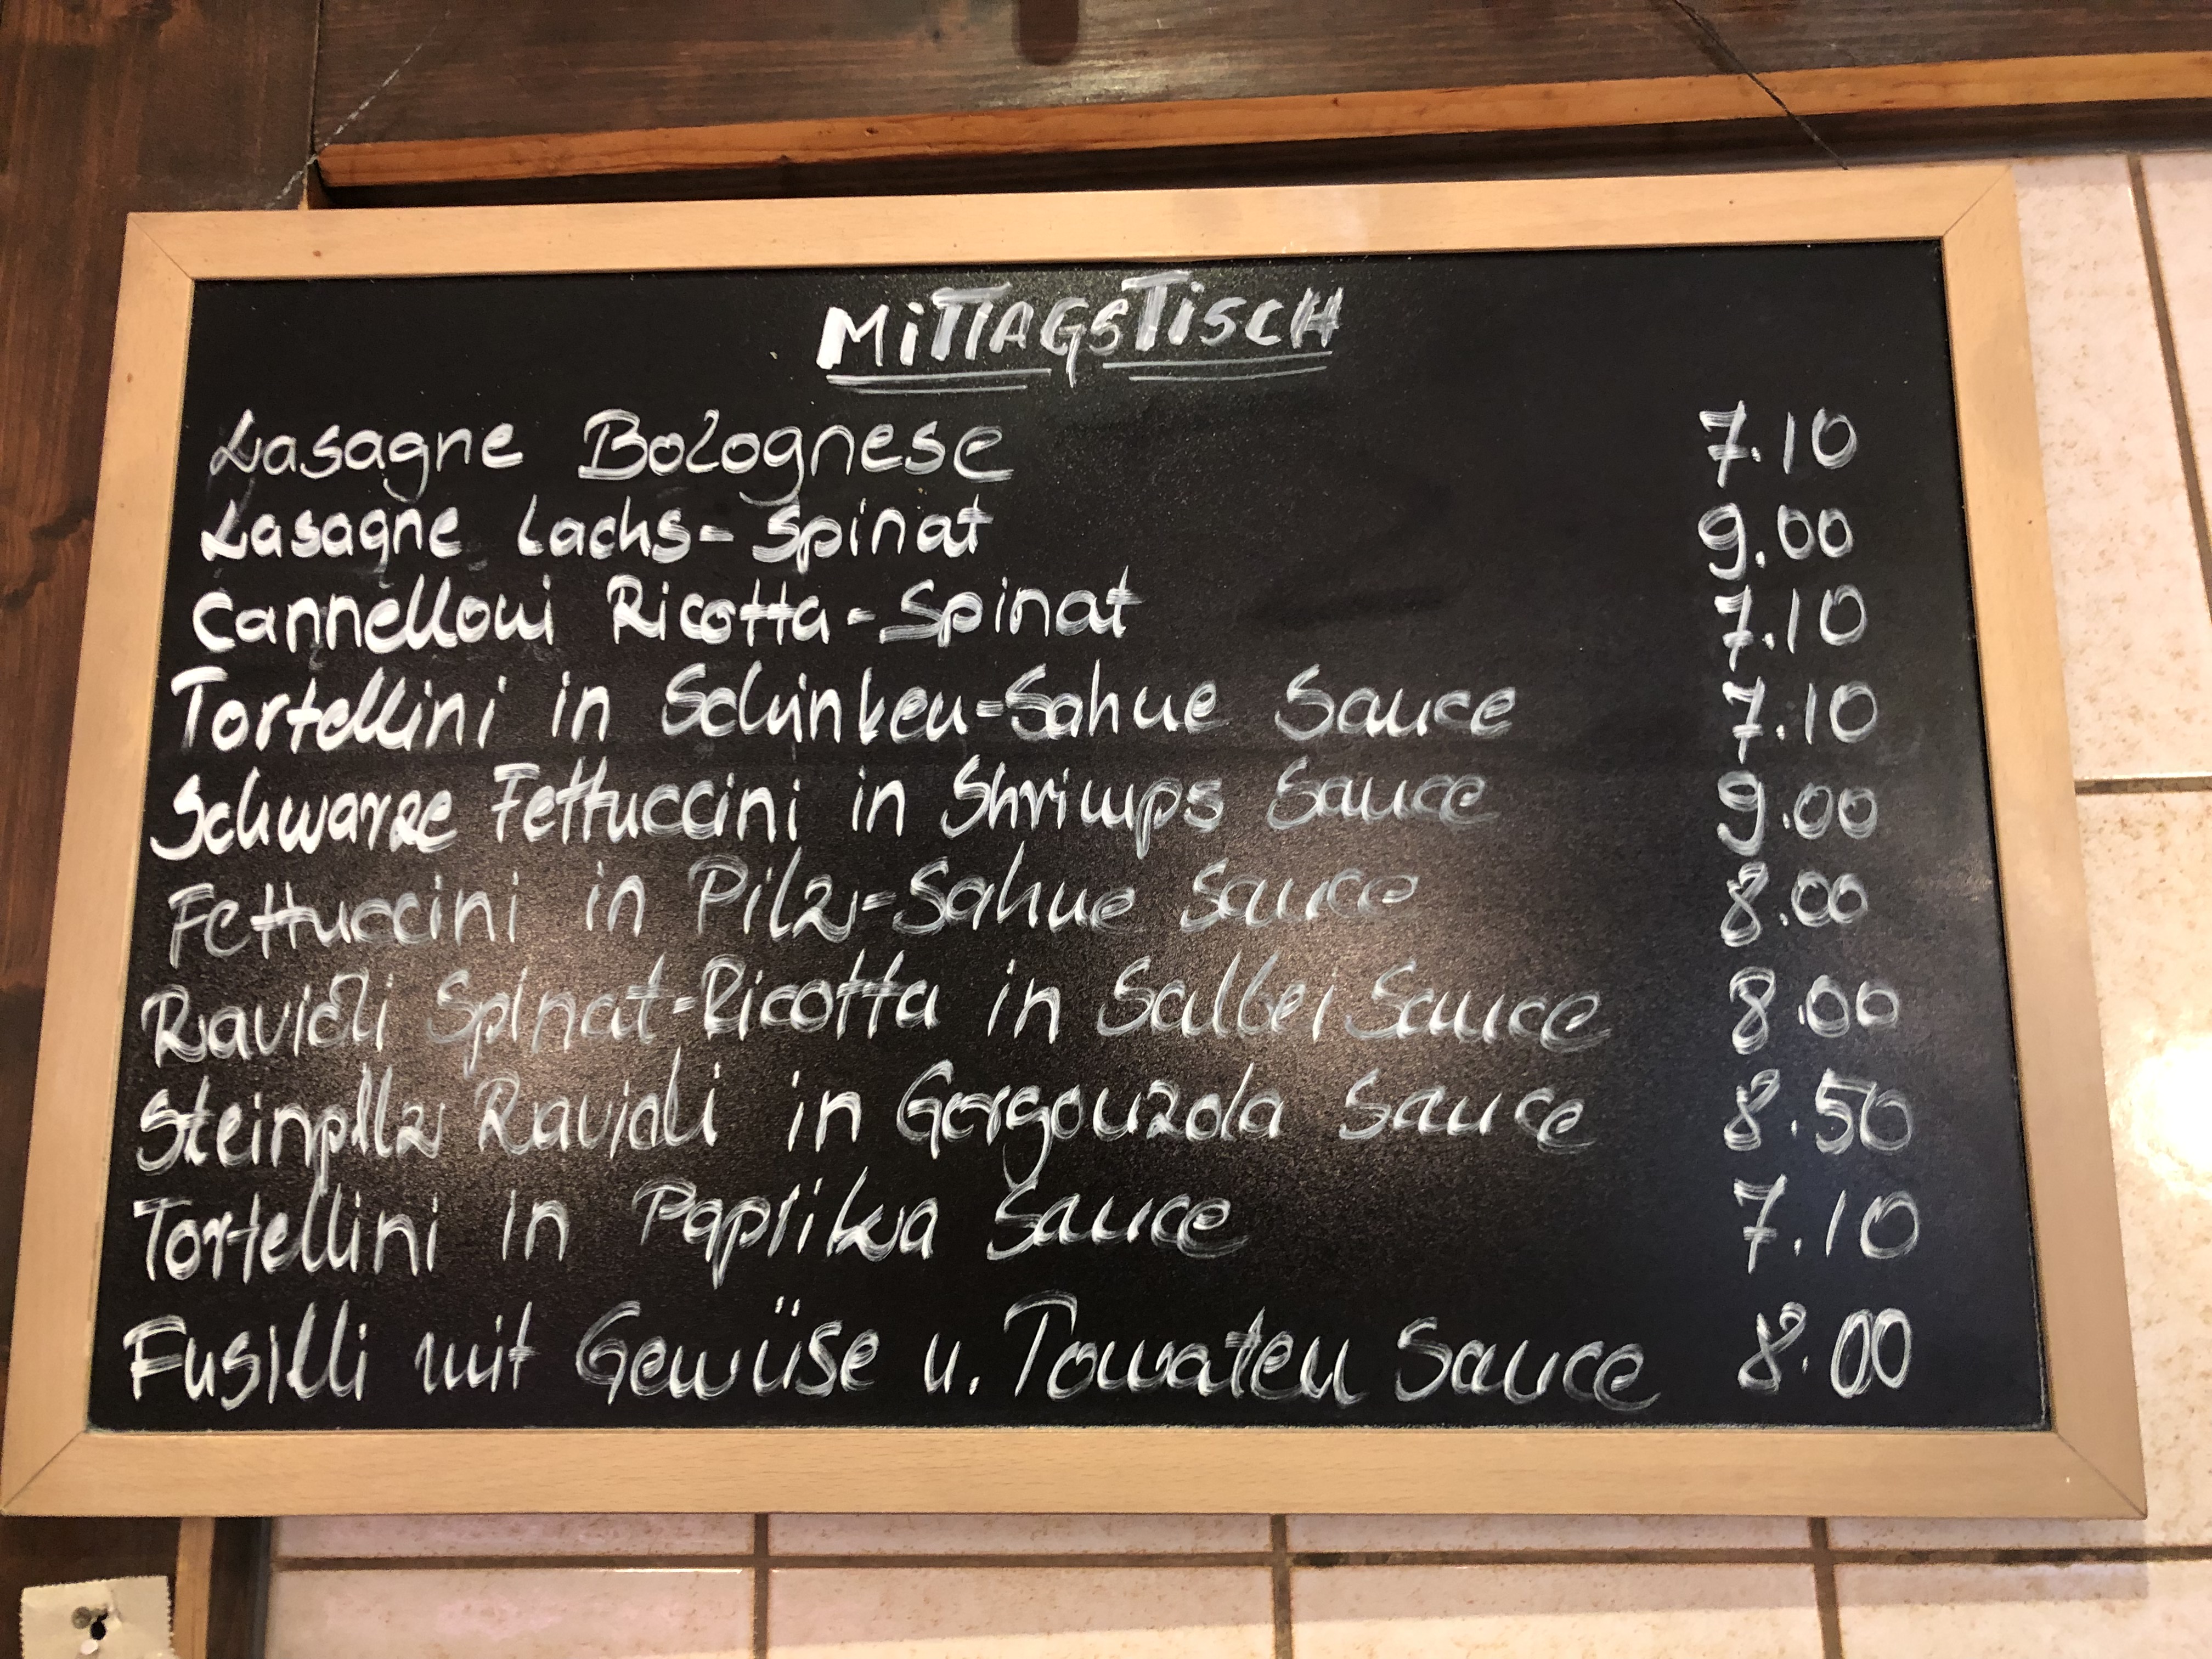 MITTAGSTISCH
Lasagne Bolognese 7.10
Lasagne Lachs-Spinat 9.00
Cannelloni Ricotta-Spinat 7.10
Tortellini in Schinken-Sahne Sauce 7.10
Schwarze Fettuccini in Shrimps Sauce 9.00
Fettuccini in Pilz-Sahne Sauce 8.00
Ravioli Spinat-Ricotta in Salbei Sauce 8.00
Steinpilz Ravioli in Gorgonzola Sauce 8.50
Tortellini in Paprika Sauce 7.10
Fusilli mit Gemüse u. Tomaten Sauce 8.00